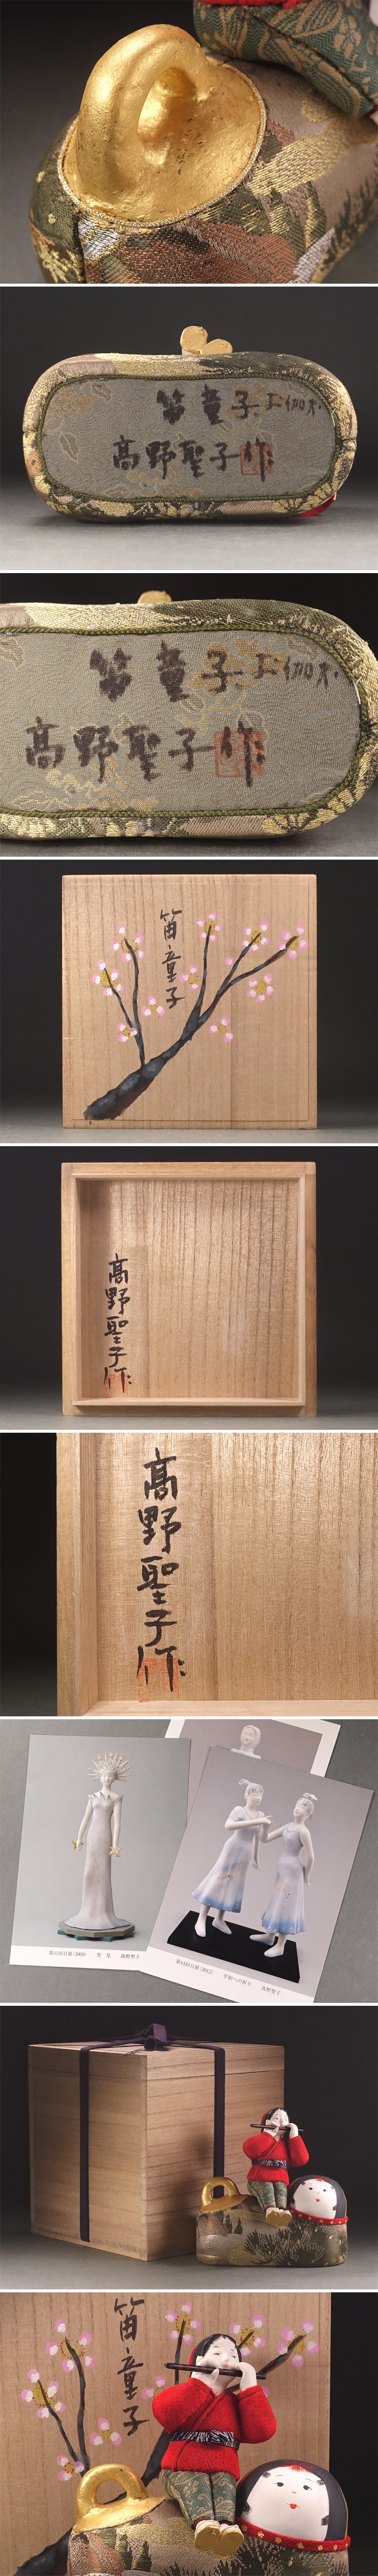 笛童子
高野聖子作
笛童子
高野聖子作
笛童子
高野聖子作
高野聖子作
第41回日展(2009) 聖星 高野聖子
第44回日展(2012) 平和への祈り 高野聖子
笛童子